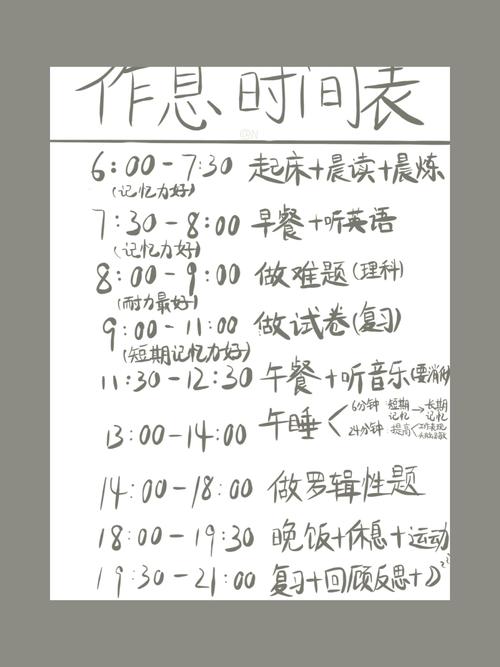 作息时间表
@N
6:00-7:30 起床+晨读+晨炼
(记忆力好)
7:30-8:00 早餐+听英语
(记忆力好)
8:00-9:00 做难题(理科)
(耐力最好)
9:00-11:00 做试卷(复习)
(短期记忆力好)
11:30-12:30 午餐+听音乐(要消
13:00-14:00 午睡<
6分钟 短期记忆→长期记忆
24分钟 提高<工作表现
14:00-18:00 做罗辑性题
18:00-19:30 晚饭+休息+运动
19:30-21:00 复习+回顾反思+